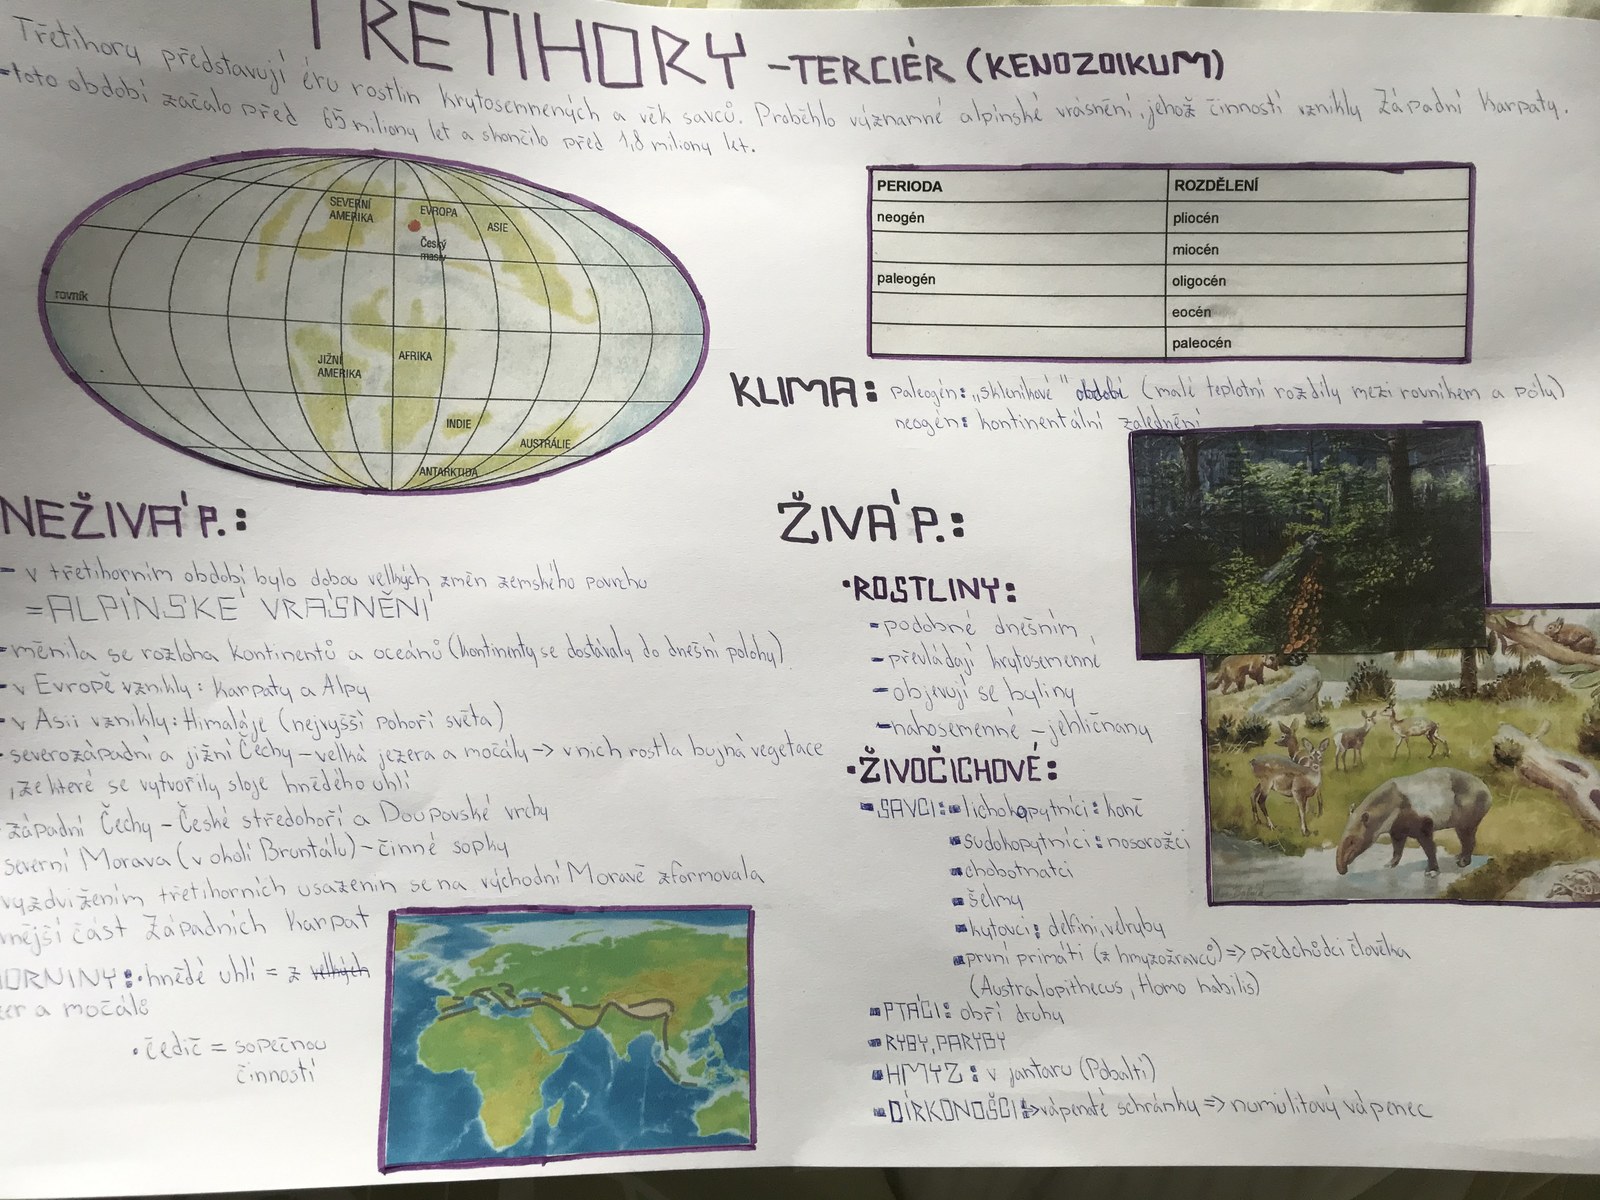 TRETIHORY - TERCIÉR (KENOZOIKUM)
Třetihory představují éru rostlin krytosemnených a věk savců. Proběhlo významné alpinské vrásnění, jehož činností vznikly Západní Karpaty.
- toto období začalo před 65 miliony let a skončilo před 1,8 miliony let.
SEVERNÍ AMERIKA
EVROPA
ASIE
Český masiv
rovník
JIŽNÍ AMERIKA
AFRIKA
INDIE
AUSTRÁLIE
ANTARKTIDA
PERIODA ROZDĚLENÍ
neogén pliocén
miocén
paleogén oligocén
eocén
paleocén
KLIMA: paleogén: „skleníkové" období (malé teplotní rozdíly mezi rovníkem a póly)
neogén: kontinentální zalednění
NEŽIVÁ P.:
- v třetihorním období bylo dobou velkých změn zemského povrchu
= ALPÍNSKÉ VRÁSNĚNÍ
- měnila se rozloha kontinentů a oceánů (kontinenty se dostávaly do dnešní polohy)
- v Evropě vznikly: Karpaty a Alpy
- v Asii vznikly: Himaláje (nejvyšší pohoří světa)
- severozápadní a jižní Čechy - velká jezera a močály -> v nich rostla bujná vegetace
, ze které se vytvořily sloje hnědého uhlí
- západní Čechy - České středohoří a Doupovské vrchy
severní Morava (v okolí Bruntálu) - činné sopky
vyzdvižením třetihorních usazenin se na východní Moravě zformovala
nější část Západních Karpat
ORNINY: • hnědé uhlí = z velkých
er a močálů
• čedič = sopečnou
činností
ŽIVÁ P.:
• ROSTLINY:
- podobné dnešním
- převládají krytosemenné
- objevují se byliny
- nahosemenné - jehličnany
• ŽIVOČICHOVÉ:
SAVCI: lichokopytníci: koně
sudokopytníci: nosorožci
chobotnatci
šelmy
kytovci: delfíni, velryby
první primáti (z hmyzožravců) => předchůdci člověka
(Australopithecus, Homo habilis)
PTÁCI: obří druhy
RYBY, PARYBY
HMYZ: v jantaru (Pobaltí)
DÍRKONOŠCI: => vápenaté schránky => numulitový vápenec